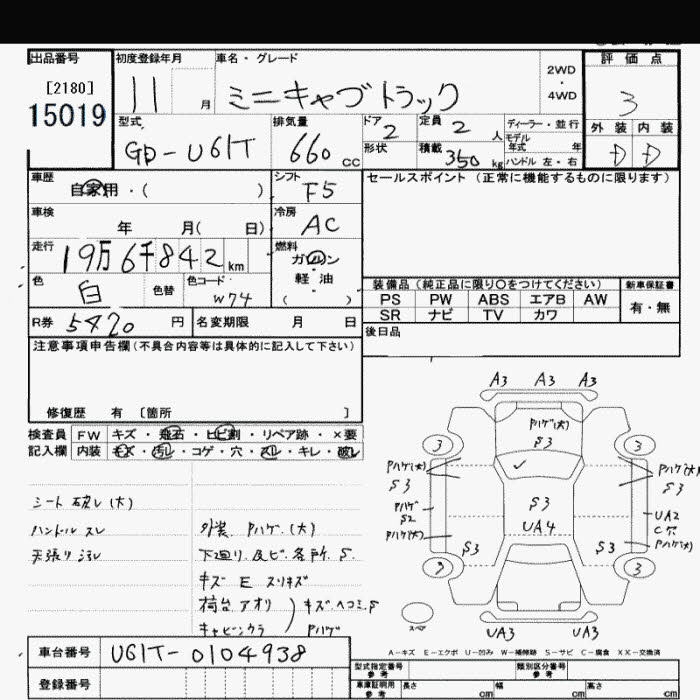 出品番号
[2180]
15019
初度登録年月
11 月
車名・グレード
ミニキャブトラック
2WD
・
4WD
評価点
3
外装 内装
D D
型式
GD-U61T
排気量
660 CC
ドア
2
定員
2 人
ディーラー・並行
モデル
年式 年
形状
積載
350 kg
ハンドル 左・右
車歴
自家用・( )
シフト
F5
セールスポイント (正常に機能するものに限ります)
車検
年 月( 日)
冷房
AC
走行
19万6千842 km
燃料
ガソリン
軽油
( )
色
白
色替
色コード
W74
装備品 (純正品に限り○をつけてください)
新車保証書
PS PW ABS エアB AW
SR ナビ TV カワ
有・無
R券
5420 円
名変期限 月 日
後日品
注意事項申告欄(不具合内容等は具体的に記入して下さい)
修復歴 有 [箇所 ]
検査員
記入欄
FW キズ・飛石・ヒビ割・リペア跡・×要
内装 キズ・汚れ・コゲ・穴・スレ・キレ・破れ
シート破レ(大)
ハンドル スレ
天張り汚レ
外装、Pハゲ.(大)
下廻り及ビ、各所、S.
キズ E スリキズ
荷台アオリ
キャビンウラ
キズ、ヘコミ,S
Pハゲ
A3 A3 A3
Pハゲ(大)
S3
3 3
Pハゲ(大)
S3
Pハゲ(大)
S3
Pハゲ
S2
Pハゲ(大)
S3
UA4
UA2
C穴
Pハゲ(大)
S3 S3
3
スペア
UA3 UA3
A-キズ E-エクボ U-凹み W-補修跡 S-サビ C-腐食 XX-交換済
車台番号
U61T-0104938
登録番号
型式指定番号
参考
類別区分番号
参考
車庫証明用
参考
長さ cm
幅 cm
高さ cm